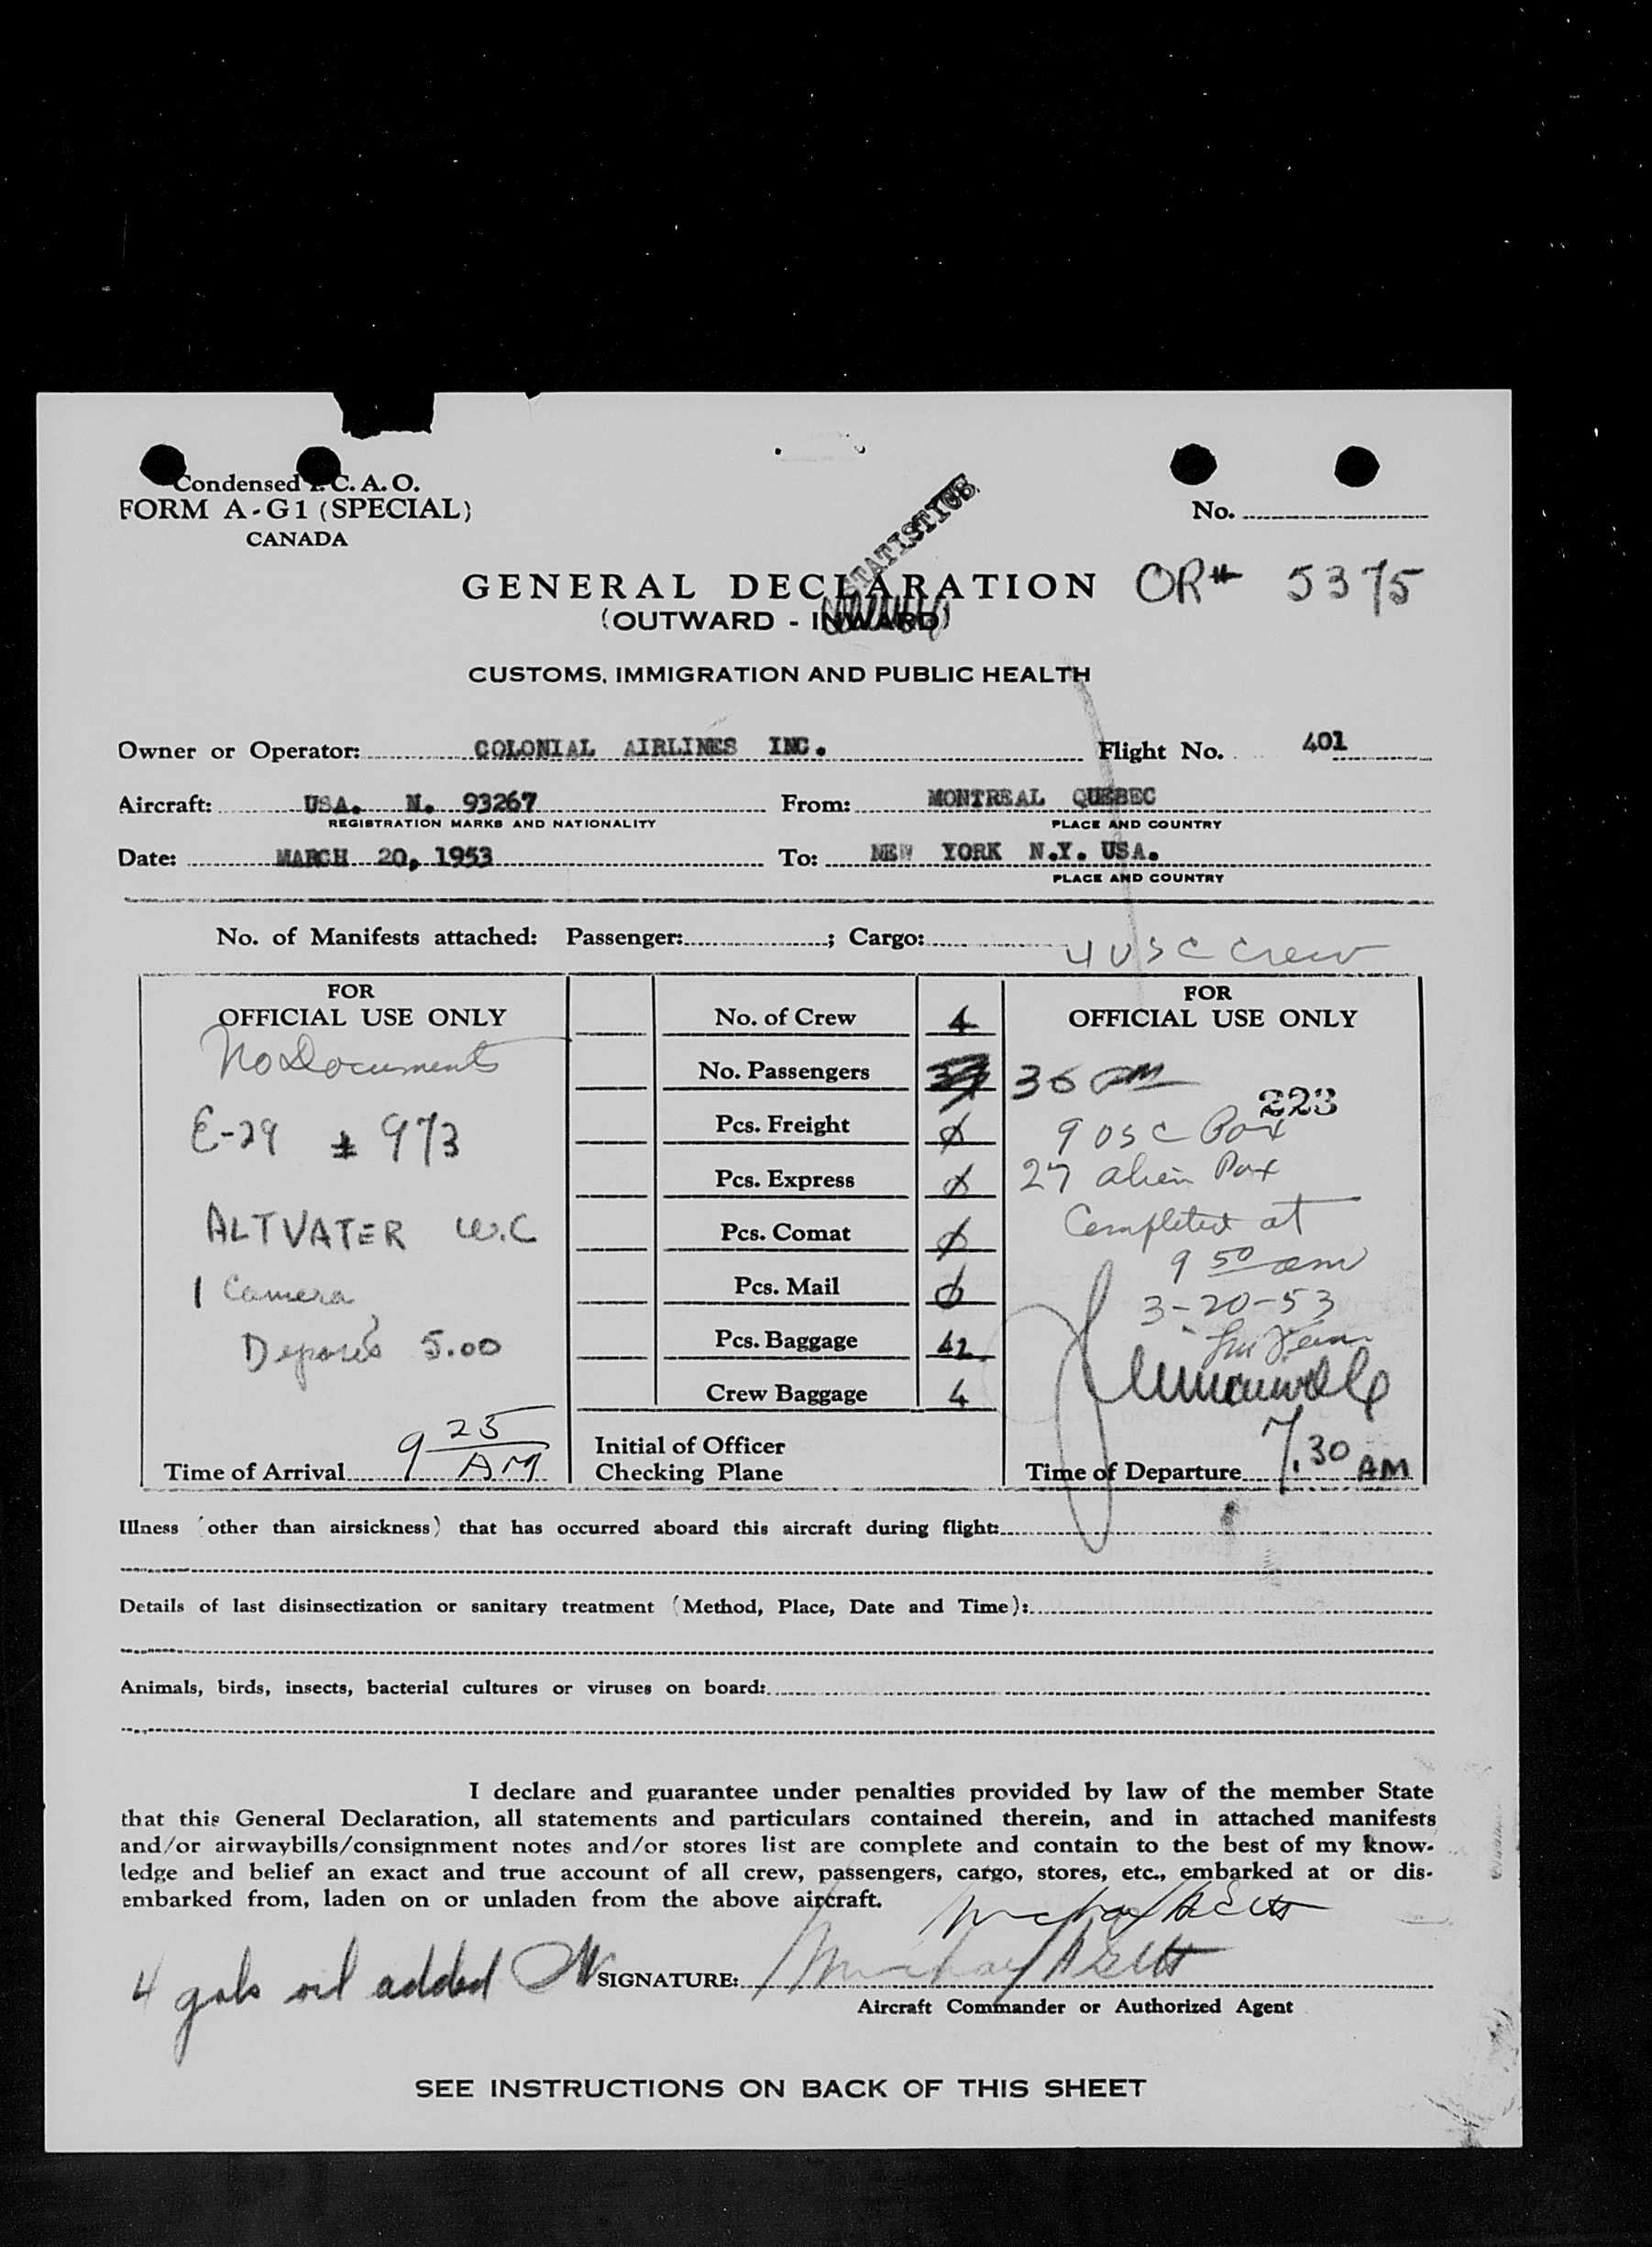 Condensed I. C. A. O.
FORM A-G1 (SPECIAL)
CANADA
No.
STATISTICS
GENERAL DECLARATION
OR# 5375
(OUTWARD - INWARD)
CUSTOMS, IMMIGRATION AND PUBLIC HEALTH
Owner or Operator: COLONIAL AIRLINES INC. Flight No. 401
Aircraft: USA. N. 93267 From: MONTREAL QUEBEC
REGISTRATION MARKS AND NATIONALITY PLACE AND COUNTRY
Date: MARCH 20, 1953 To: NEW YORK N.Y. USA.
PLACE AND COUNTRY
No. of Manifests attached: Passenger: ; Cargo:
4 USC Crew
FOR
OFFICIAL USE ONLY
No Documents
E-29 # 973
ALTVATER W.C
1 Camera
5.00
Time of Arrival 9 25 AM
No. of Crew 4
No. Passengers
Pcs. Freight ∅
Pcs. Express ∅
Pcs. Comat ∅
Pcs. Mail ∅
Pcs. Baggage 42
Crew Baggage 4
Initial of Officer
Checking Plane
FOR
OFFICIAL USE ONLY
36
223
9 USC Pax
27 alien Pax
Completed at
9 50 am
3-20-53
Time of Departure 7.30 AM
Illness (other than airsickness) that has occurred aboard this aircraft during flight:
Details of last disinsectization or sanitary treatment (Method, Place, Date and Time):
Animals, birds, insects, bacterial cultures or viruses on board:
I declare and guarantee under penalties provided by law of the member State
that this General Declaration, all statements and particulars contained therein, and in attached manifests
and/or airwaybills/consignment notes and/or stores list are complete and contain to the best of my know-
ledge and belief an exact and true account of all crew, passengers, cargo, stores, etc., embarked at or dis-
embarked from, laden on or unladen from the above aircraft.
4 gals oil added
SIGNATURE:
Aircraft Commander or Authorized Agent
SEE INSTRUCTIONS ON BACK OF THIS SHEET